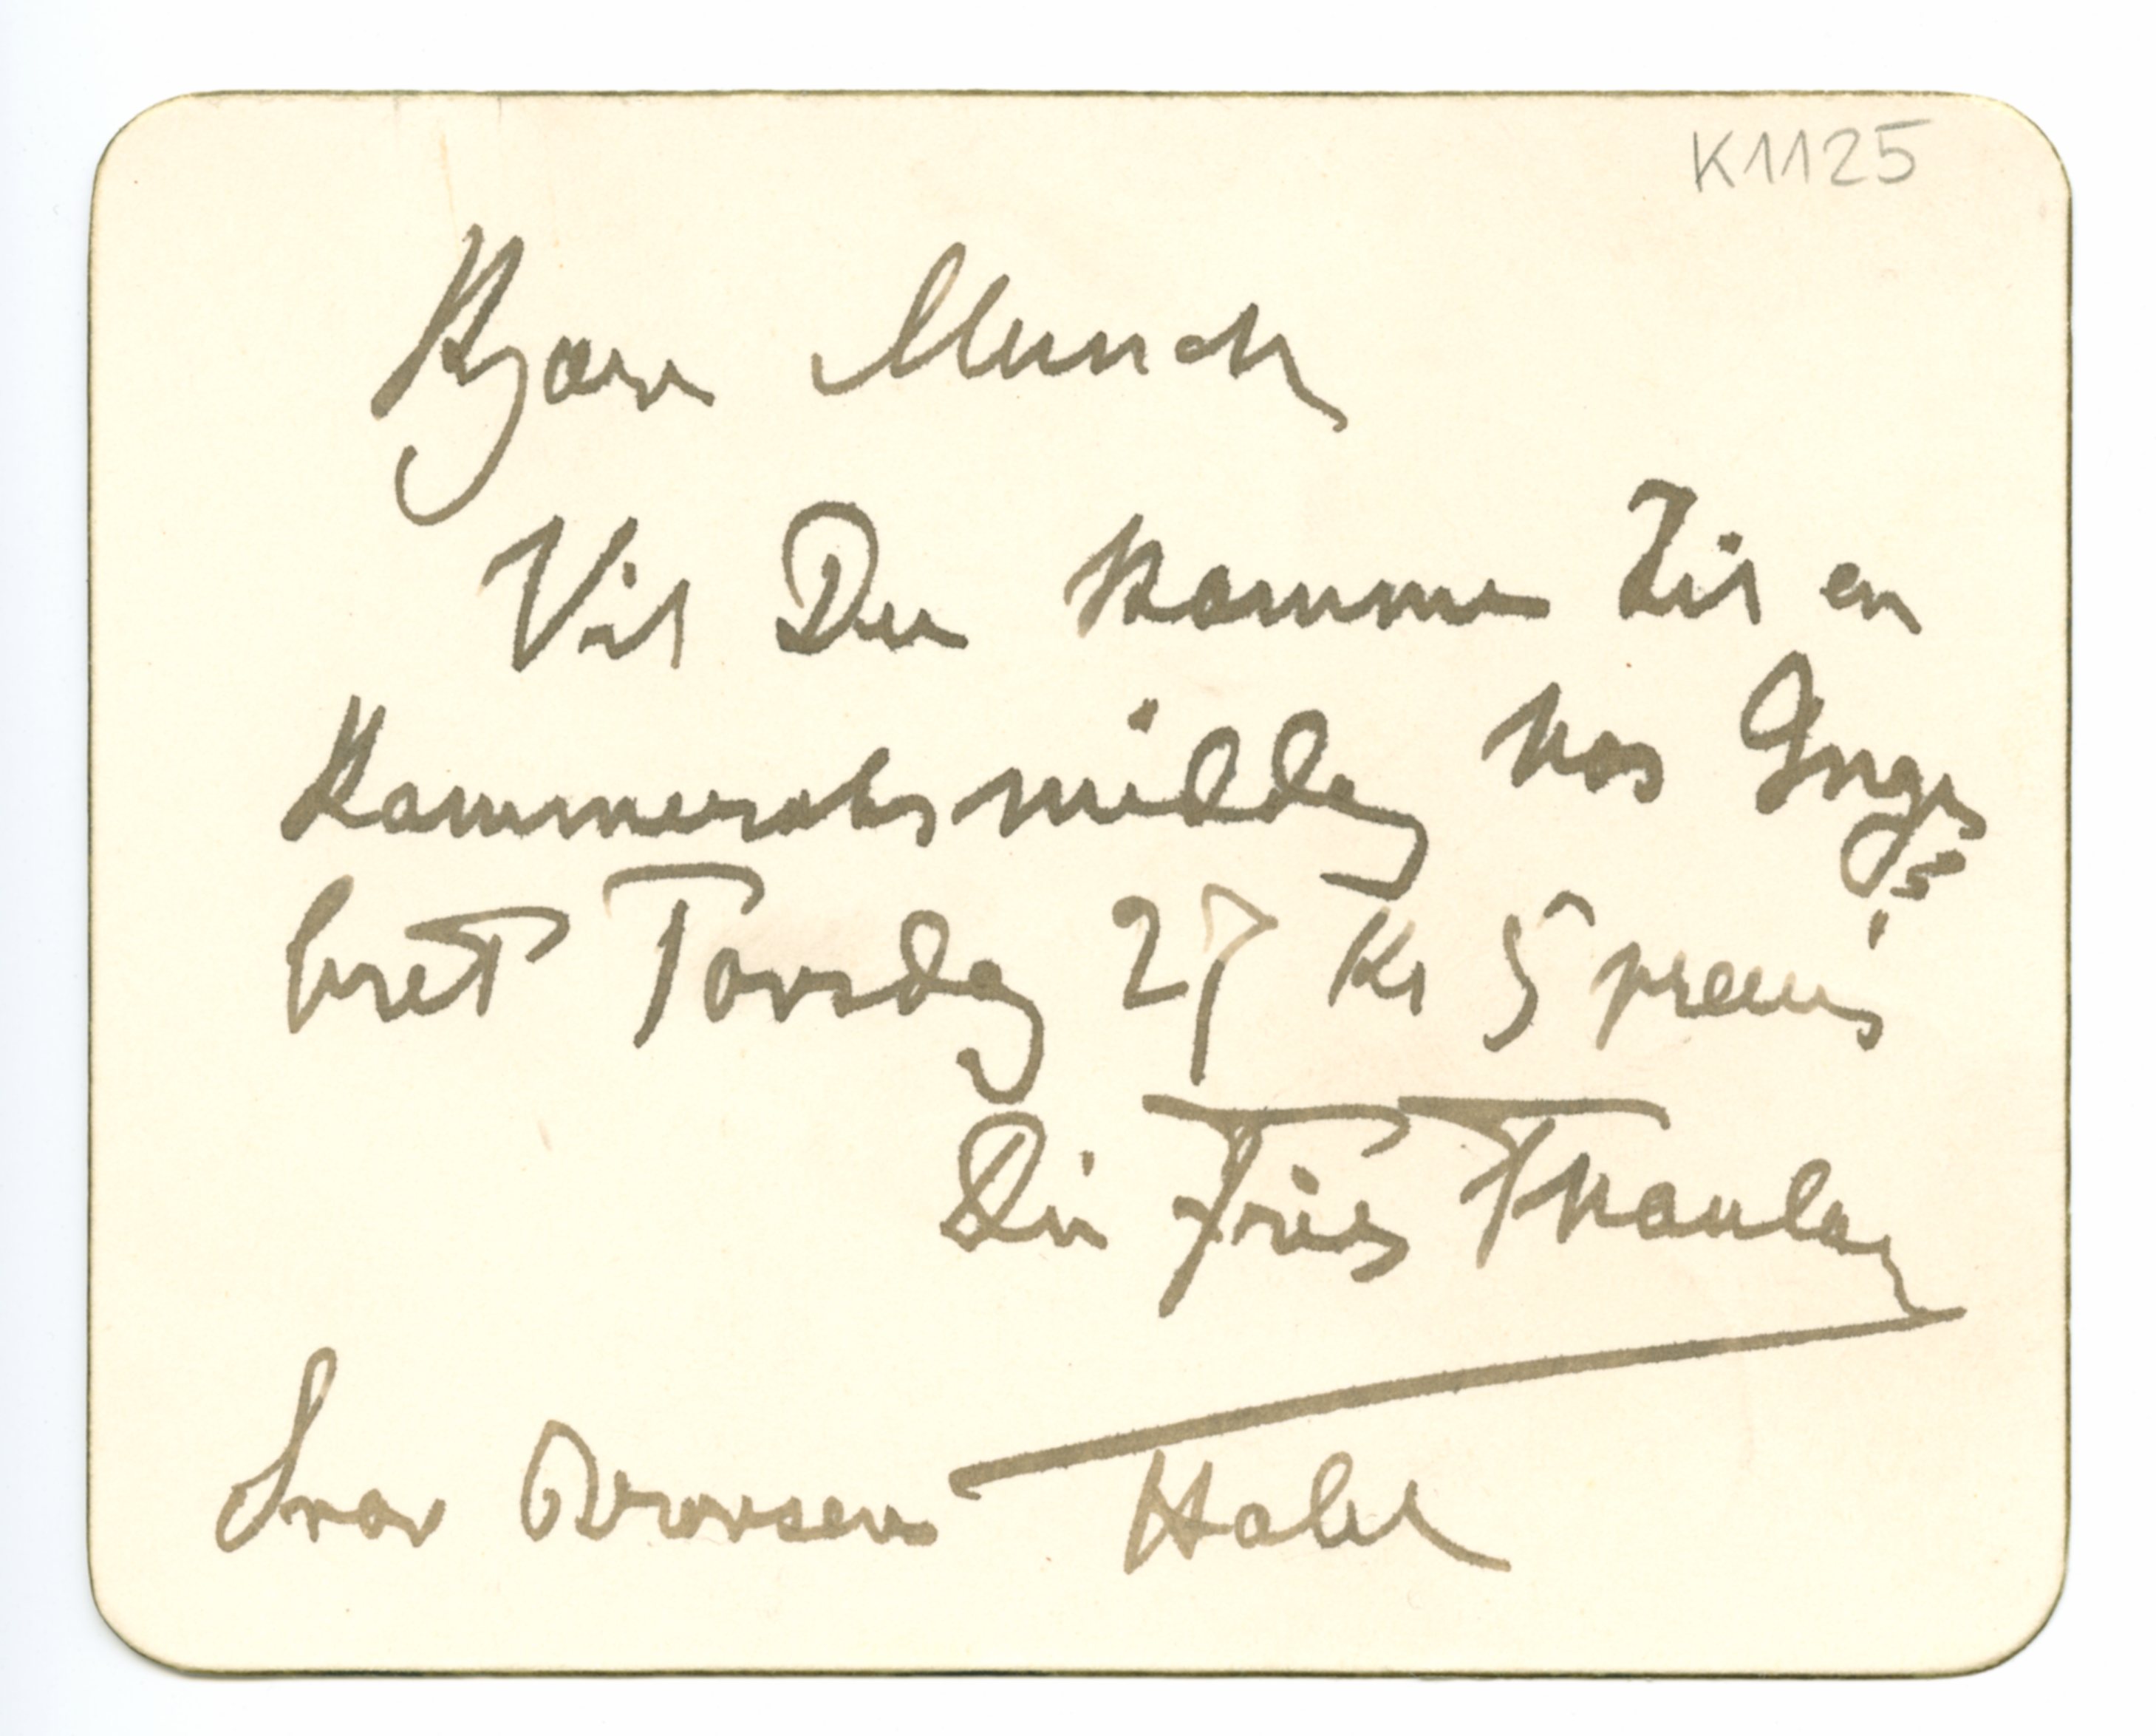 K1125
Kjære Munch
Vil Du komme til en
Kammeratsmiddag hos Inge=
bret Torsdag 27 Kl 5 præcis
Din Frits Thaulow
Svar Brorsens Hotel